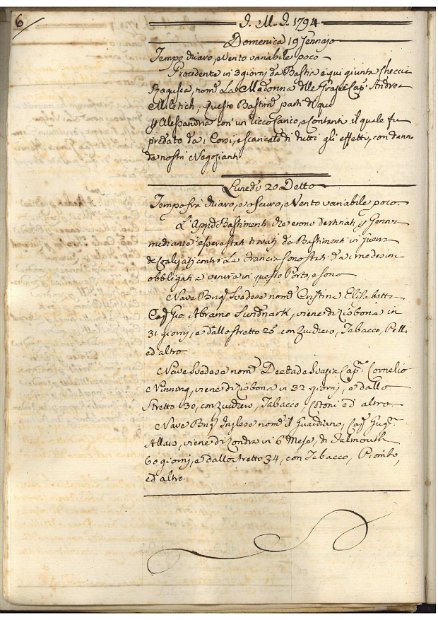 6
J. M. J. 1794
Domenica 19 Gennajo
Tempo chiaro, e Vento variabile poco
Procedente in giorni da Bastia è qui giunta
Ragusea, nom.ta La Madonna delle Grazie Cap. Andrea
questo Bastim.to partì di qui
p Alessandria con un ricco Carico, e contanti il quale fu
predato da i Corsi, e scaricato di tutti gli effetti, con danno
de nostri Negozianti
Lunedì 20 Detto
Tempo fra chiaro, e oscuro, e Vento variabile poco
L'App.di Bastimenti che erono destinati p Genova
mediante essere stati trovati da Bastimenti in guerra
de Coalizati contro la Francia sono stati da i medesimi
obbligati a venire in questo Porto, e sono
Nave Svedese nom.ta Cristina Elisabetta
Cap. Abramo, viene di Lisbona in
31 giorni, e dallo stretto 26 con Zucchero, Tabacco, Pelli
ed altro
Nave Svedese nom.ta Cap. Cornelio
viene di Lisbona in 32 giorni, e dallo
Stretto 30, con Zucchero, Tabacco, Cotoni ed altro
Nave Inglese nom.ta Il Guardiano, Cap.
viene di Londra in 6 Mesi, di Falmouth
60 giorni, e dallo stretto 34, con Tabacco, Piombo,
ed altro